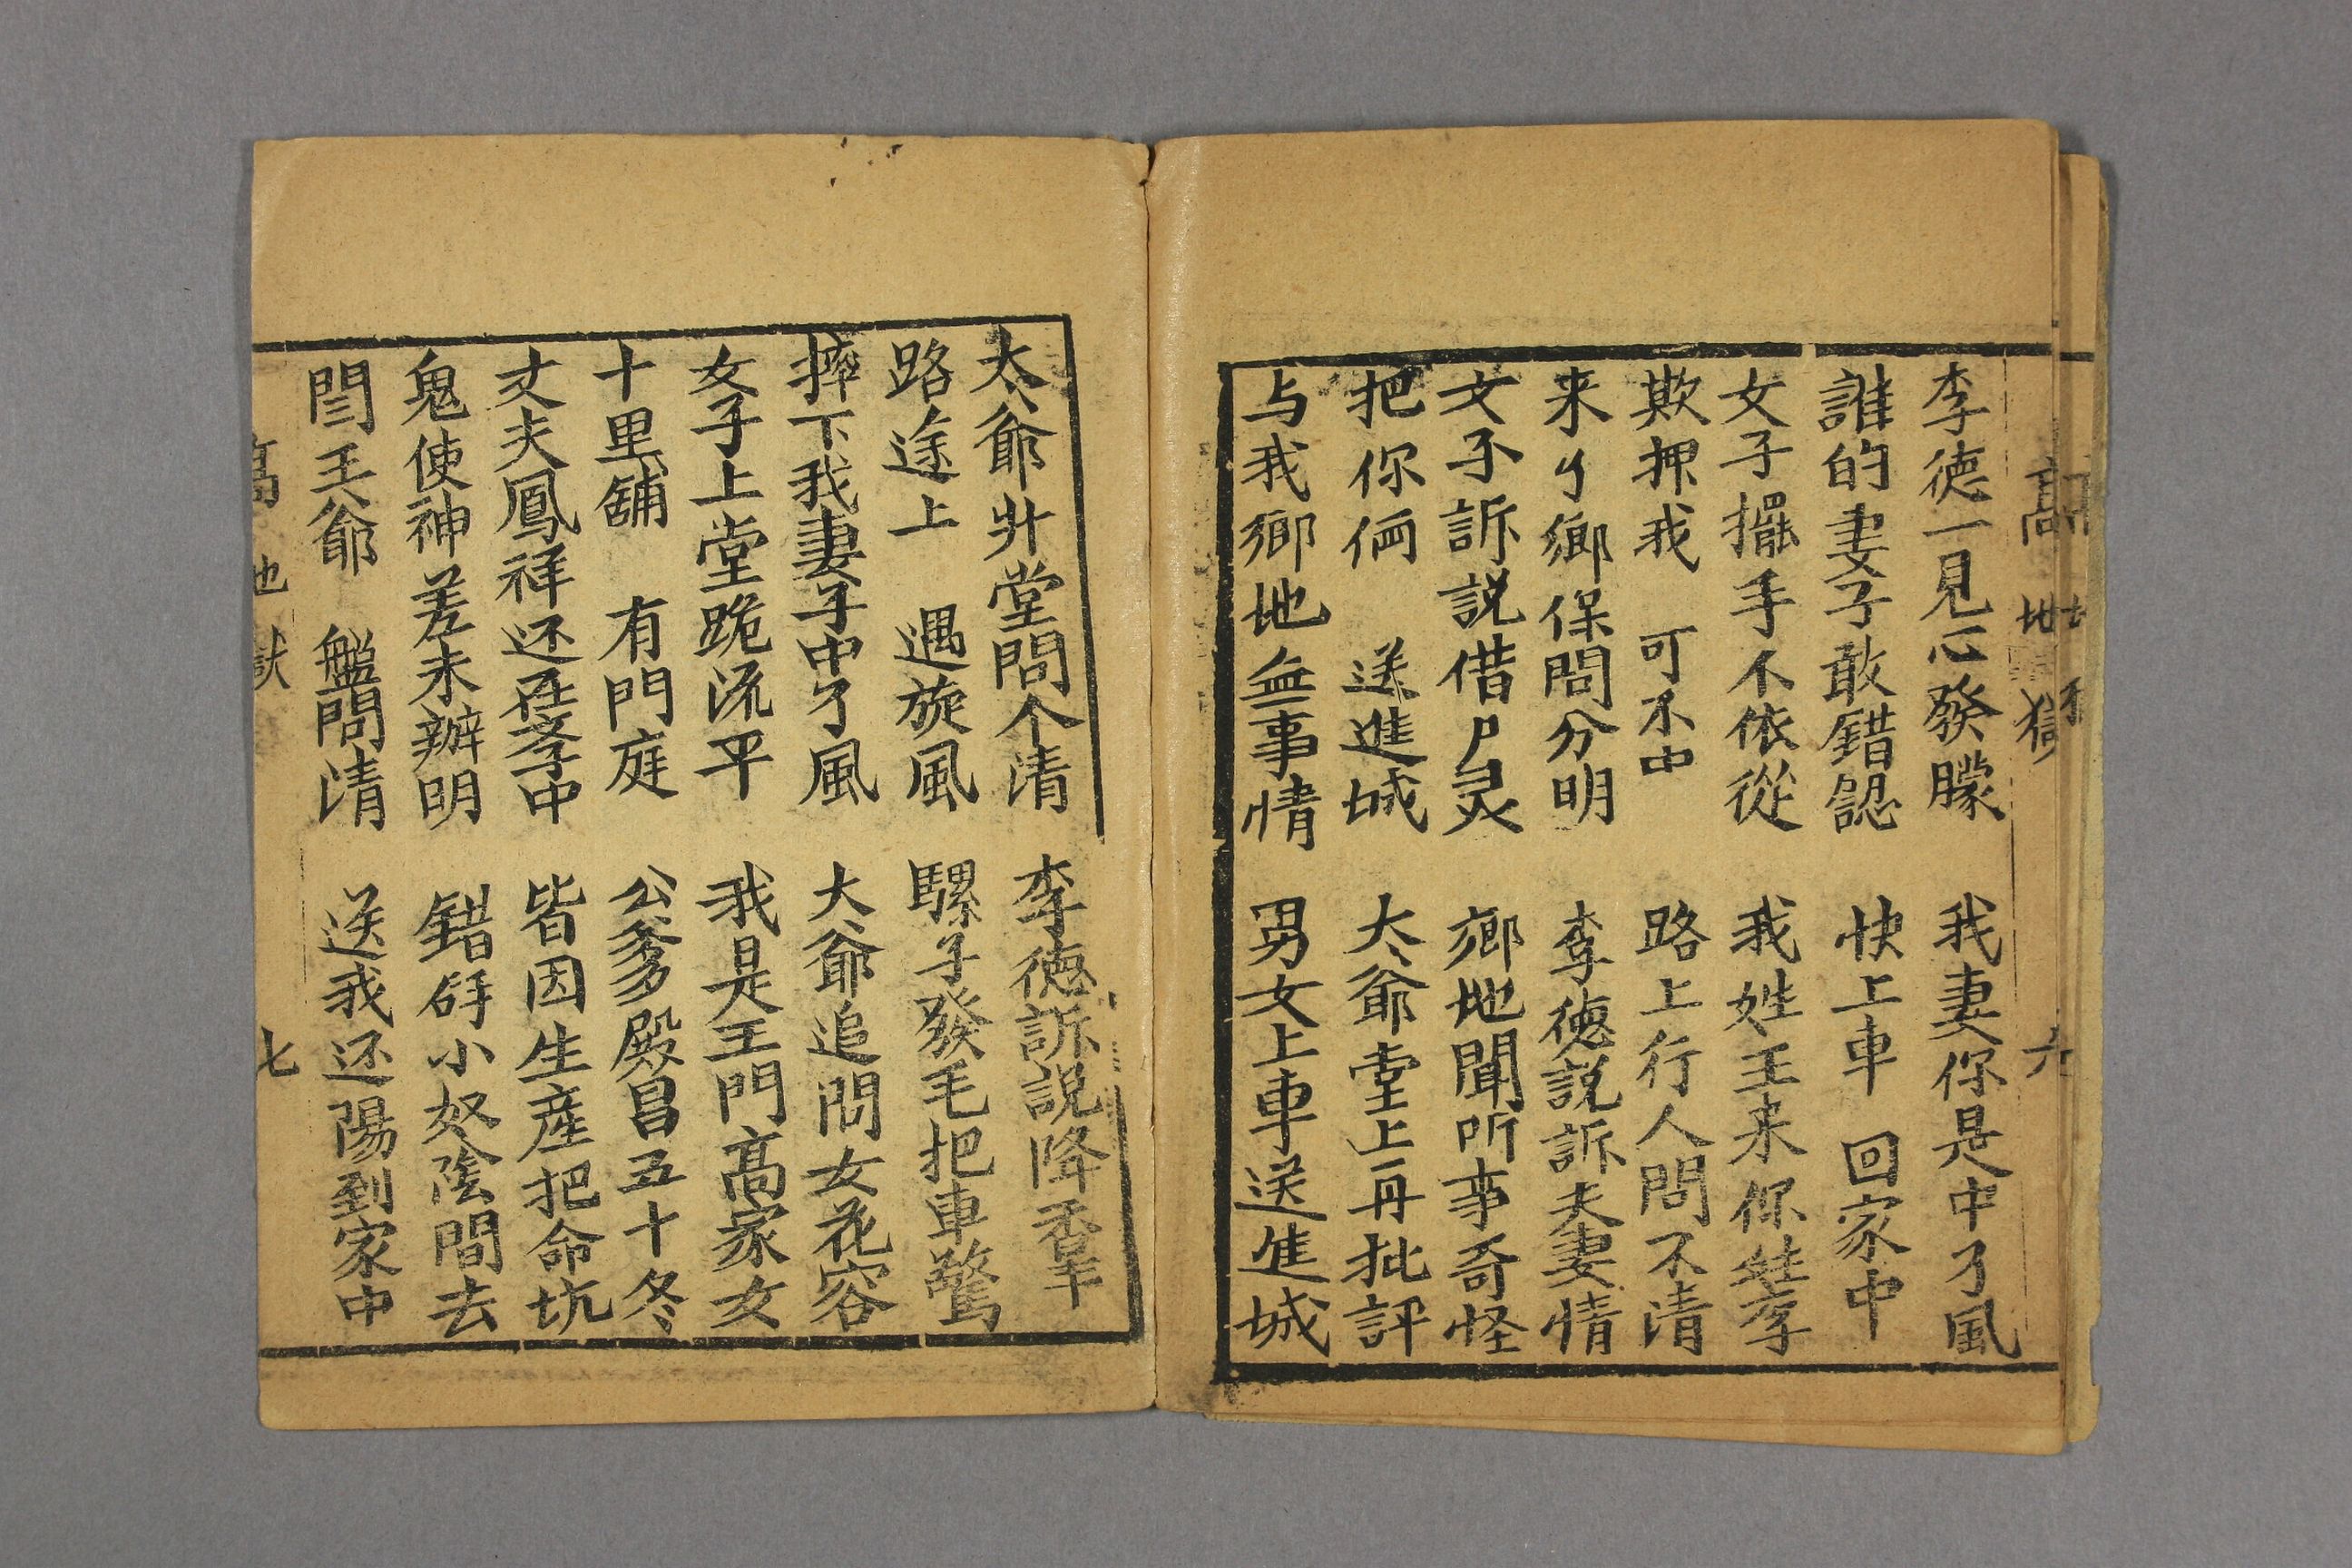 高 地獄 六
李德一見心發朦 我妻你是中了風
誰的妻子敢錯認 快上車 回家中
女子擺手不依從 我姓王来你姓李
欺押我 可不中 路上行人問不清
来了鄉保問分明 李德説訴夫妻情
女子訴説借尸灵 鄉地聞听事奇怪
把你俩 送進城 太爺堂上再批評
与我鄉地無事情 男女上車送進城
太爺廾堂問个清 李德訴説降香羊
路途上 遇旋風 騾子發毛把車驚
摔下我妻子中了風 大爺追問女花容
女子上堂跪流平 我是王門高家女
十里舖 有門庭 公爹殿昌五十冬
丈夫鳳祥还在孝中 皆因生産把命坑
鬼使神差未辦明 錯𢪃小奴陰間去
閆王爺 盤問清 送我还陽到家中
高 地獄 七